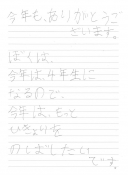 今年も、ありがとう
ございます。
ぼくは、
今年は4年生に
なるので、
今年は、もっと
ひきょりを
のばしたい
です。